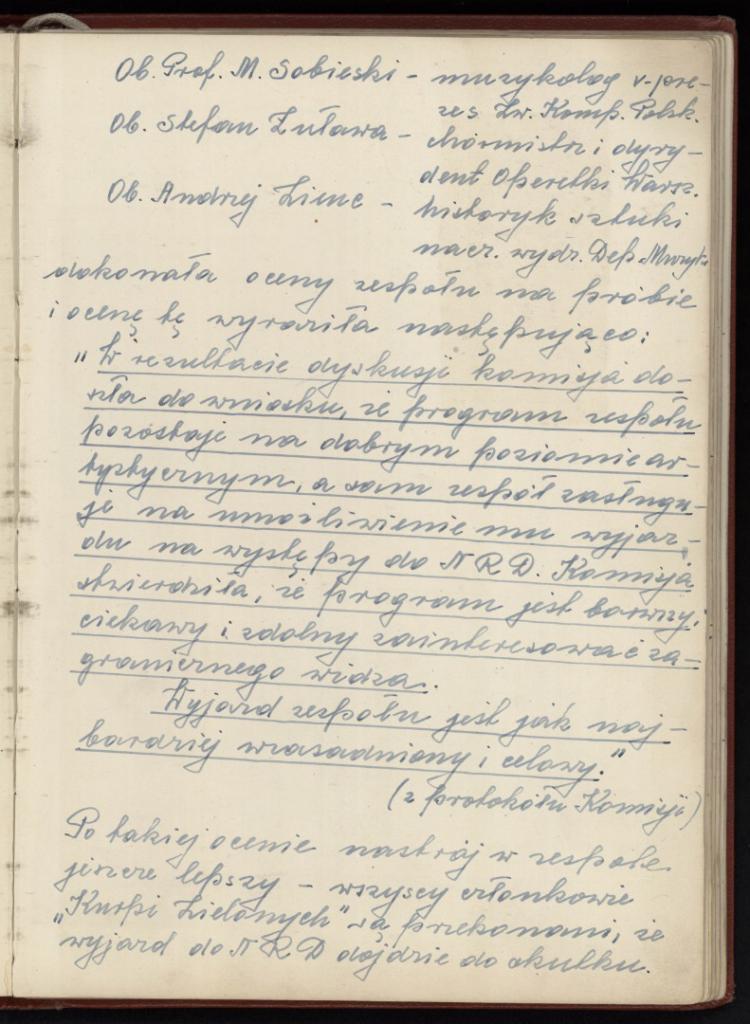 Ob. Prof. M. Sobieski - muzykolog v-pre-
zes Zw. Komp. Polsk.
Ob. Stefan Żuława - chórmistrz i dyry-
gent Operetki Warsz.
Ob. Andrzej Lienc - historyk sztuki
nacz. wydz. Dep. Muzyk.
dokonała oceny zespołu na próbie
i ocenę tę wyraziła następująco:
"W rezultacie dyskusji komisja do-
szła do wniosku, że program zespołu
pozostaje na dobrym poziomie ar-
tystycznym, a sam zespół zasługu-
je na umożliwienie mu wyjaz-
du na występy do NRD. Komisja
stwierdziła, że program jest barwny,
ciekawy i zdolny zainteresować za-
granicznego widza.
Wyjazd zespołu jest jak naj-
bardziej uzasadniony i celowy."
(z protokółu Komisji)
Po takiej ocenie nastrój w zespole
jeszcze lepszy - wszyscy członkowie
"Kurpi Zielonych" są przekonani, że
wyjazd do NRD dojdzie do skutku.